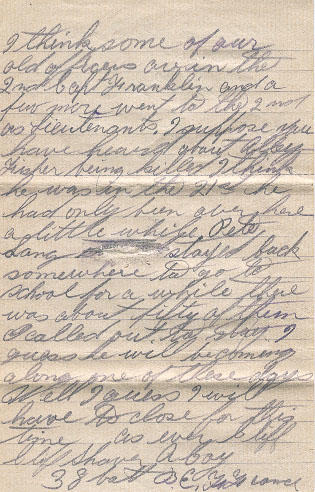 I think some of our
old officers are in the
2nd Capt Franklin and a
few more went to the 2nd
as lieutenants. I suppose you
have heard about
Fisher being killed I think
he was in the 21st he
had only been over here
a little while. Pete
Lang stayed back
somewhere to go to
school for a while there
was about fifty of them
called out to start I
guess he will be coming
along one of these days
Well I guess I will
have to close for this
time as ever Cliff
Cliff Shaver A Coy
38 Batt France